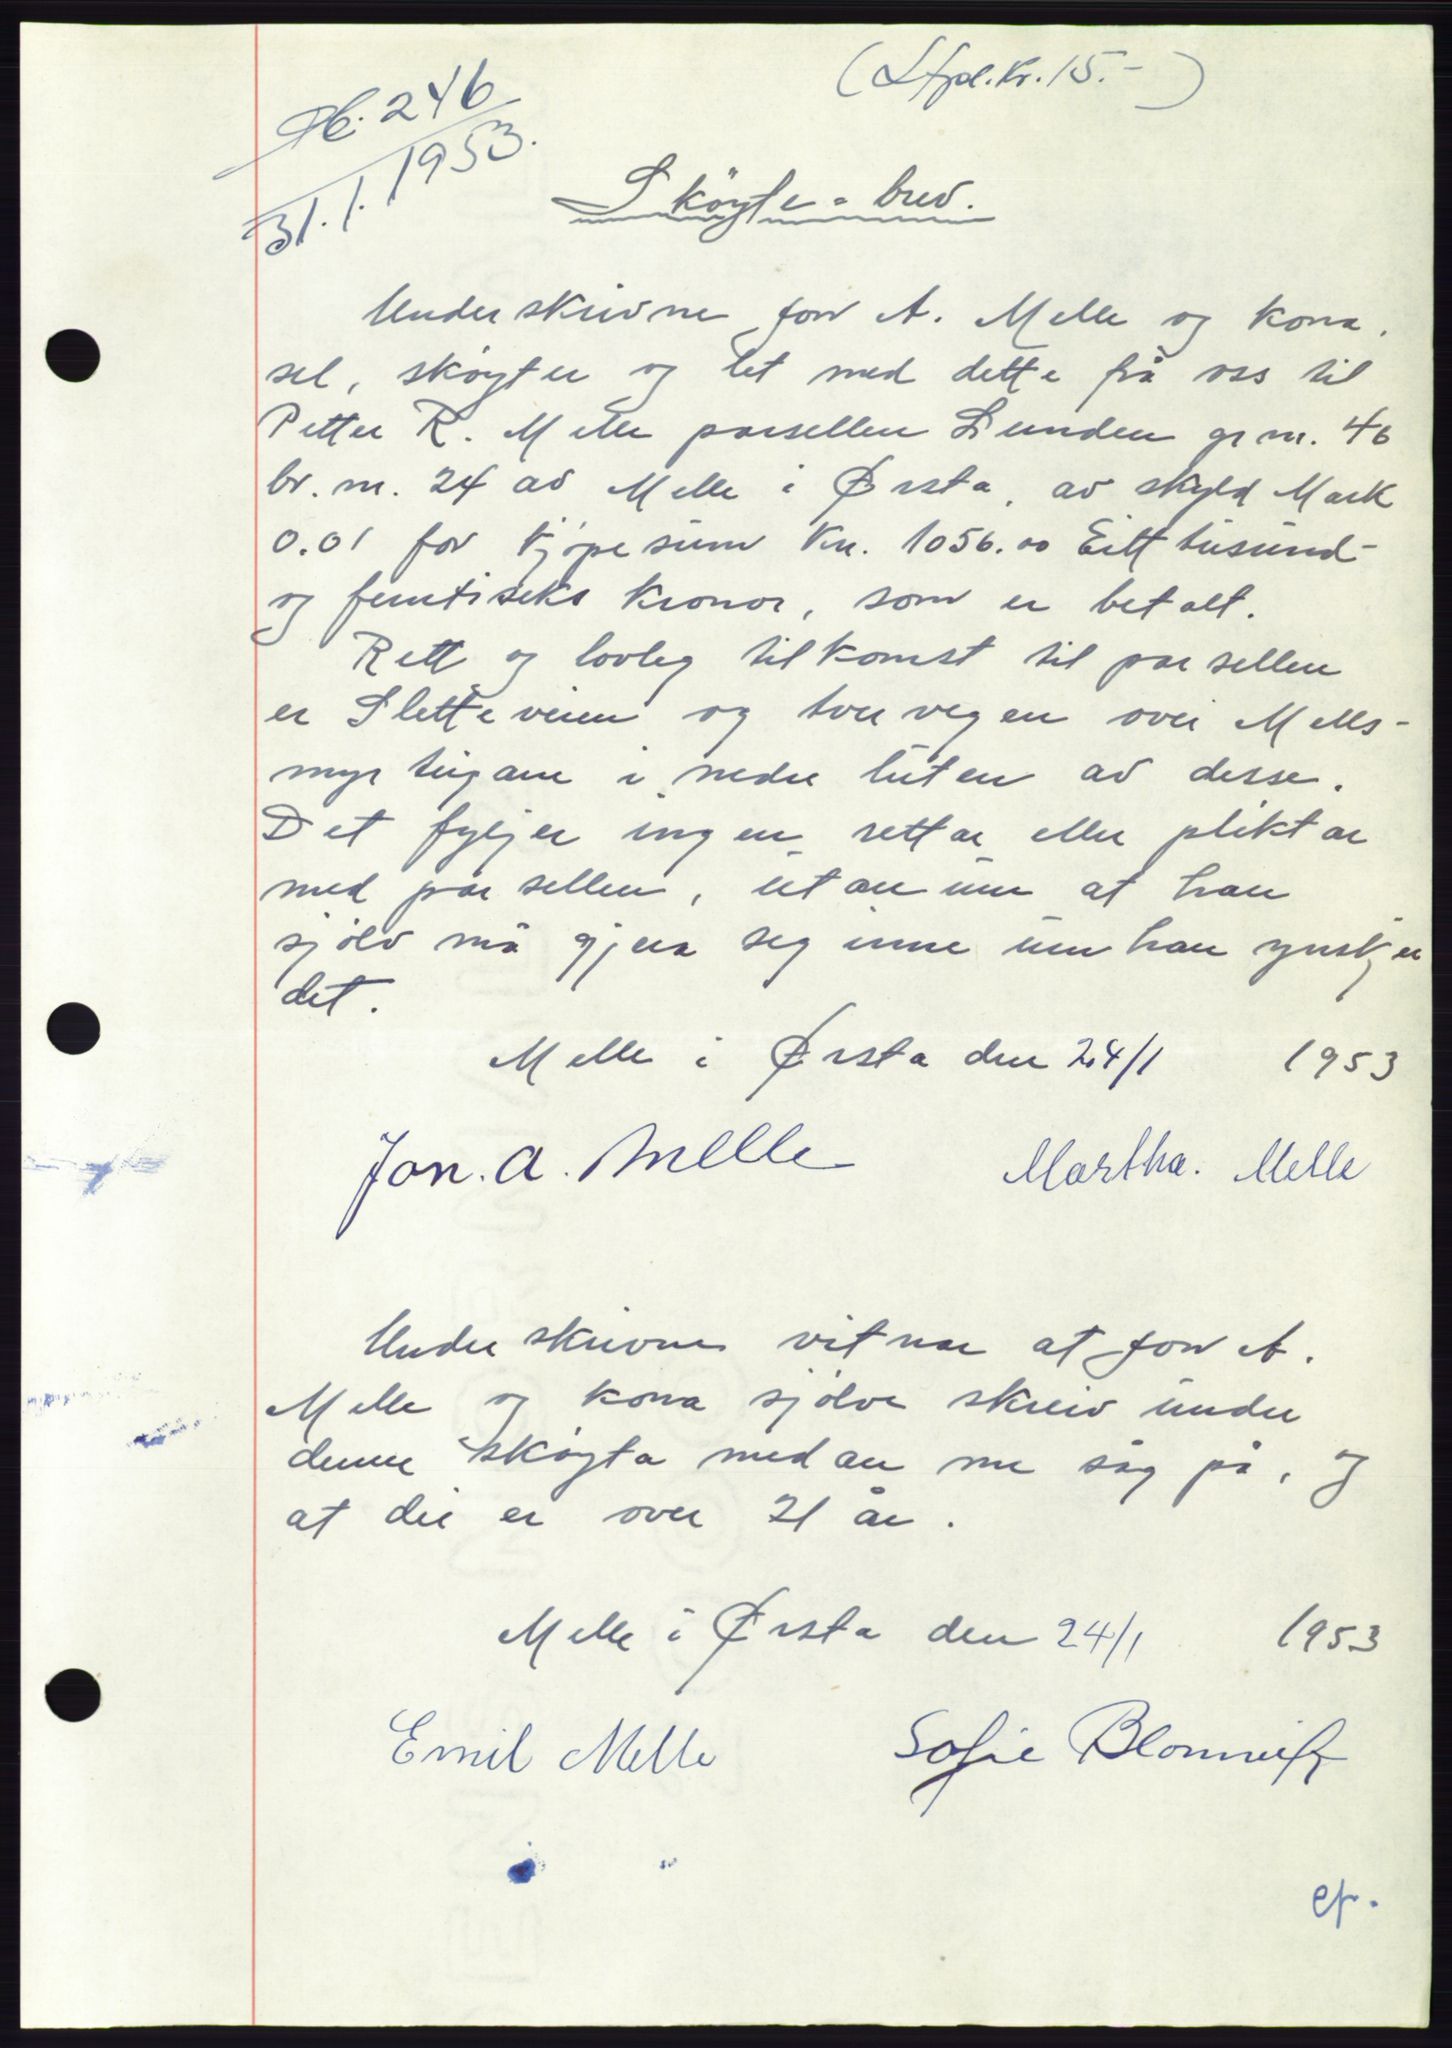 (Stpl. Kr. 15.-)
Db. 246
31.1.1953.
Sköyte-brev.
Underskrivne Jon A. Melle og kona,
sel, skøyter og let med dette frå oss til
Petter R. Melle parsellen Lunden gr.nr. 46
br.nr. 24 av Melle i Ørsta, av skyld Mark
0.01 for kjøpesum Kr. 1056.00 Eitt tusund-
og femtiseks kronor, som er betalt.
Rett og lovleg tilkomst til parsellen
er Sletteveien og tvervegen over Mells-
myrteigane i nedre luten av desse.
Det fylgjer ingen rettar eller pliktar
med parsellen, utan um at han
sjølv må gjera seg inne um han ynskjer
det.
Melle i Ørsta den 24/1 1953
Jon. A. Melle Martha. Melle
Underskrivne vitnar at Jon A.
Melle og kona sjølve skreiv under
denne skøyta medan me såg på, og
at dei er over 21 år.
Melle i Ørsta den 24/1 1953
Emil Melle Sofie
ef.